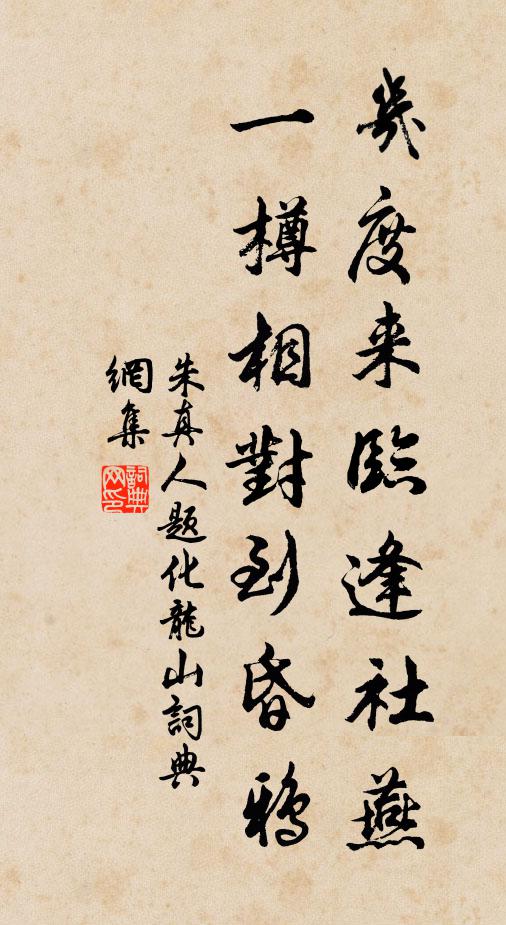 幾度来臨逢社燕
一樽相對到昏鴉
朱真人题化龍山詞典
網集
詞典网印